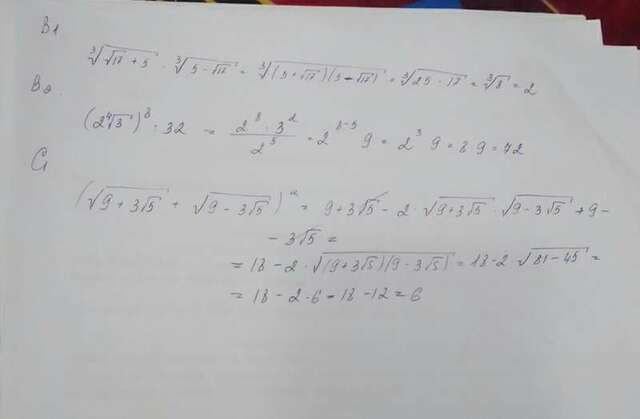 B1
∛(√17 + 5) · ∛(5 - √17) = ∛((5 + √17)(5 - √17)) = ∛(25 - 17) = ∛8 = 2
B2
(2∜3)⁸ : 32 = (2⁸ · 3²)/2⁵ = 2⁸⁻⁵ 9 = 2³ 9 = 8·9 = 72
C1
(√(9 + 3√5) + √(9 - 3√5))² = 9+3√5 - 2·√(9+3√5) · √(9-3√5) + 9 -
- 3√5 =
= 18 - 2 · √((9+3√5)(9-3√5)) = 18-2·√(81-45) =
= 18 - 2·6 = 18 - 12 = 6